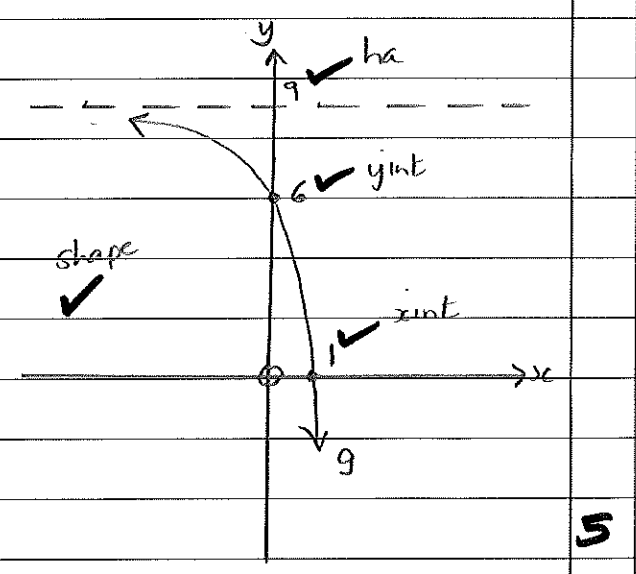 y
✓ ha
9
6 ✓ yint
shape
✓
✓ xint
1
x
g
5